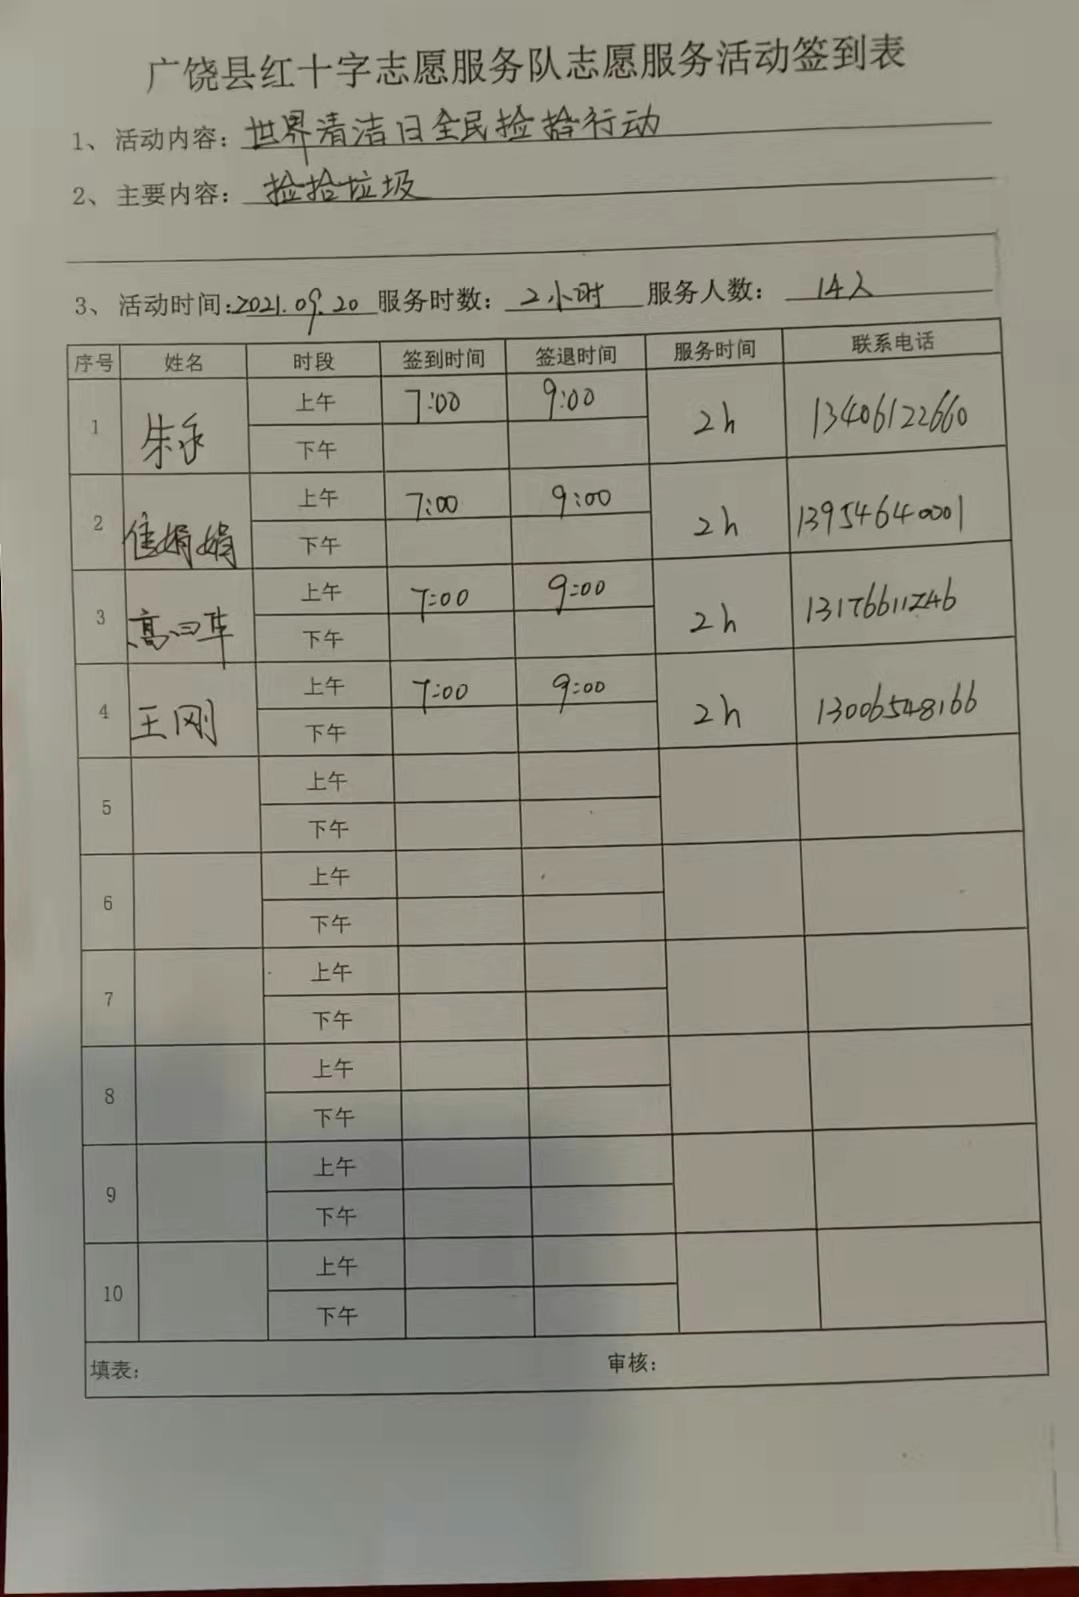 广饶县红十字志愿服务队志愿服务活动签到表
1、活动内容：世界清洁日全民捡拾行动
2、主要内容：捡拾垃圾
3、活动时间：2021.09.20 服务时数：2小时 服务人数：14人
序号 姓名 时段 签到时间 签退时间 服务时间 联系电话
1 朱永 上午 7:00 9:00 2h 13406122660
下午
2 娟娟 上午 7:00 9:00 2h 13954640001
下午
3 高 上午 7:00 9:00 2h 13176611246
下午
4 王刚 上午 7:00 9:00 2h 13006548166
下午
5 上午
下午
6 上午
下午
7 上午
下午
8 上午
下午
9 上午
下午
10 上午
下午
填表： 审核：